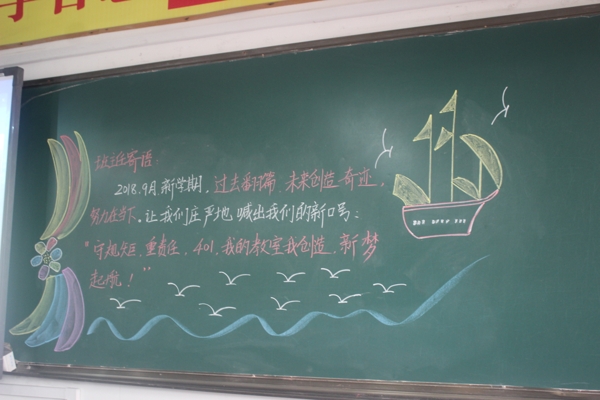 班主任寄语:
2018.9月新学期,过去翻篇.未来创造奇迹,
努力在当下.让我们庄严地喊出我们的新口号:
"守规矩,重责任,401,我的教室我创造,新梦
起航!"